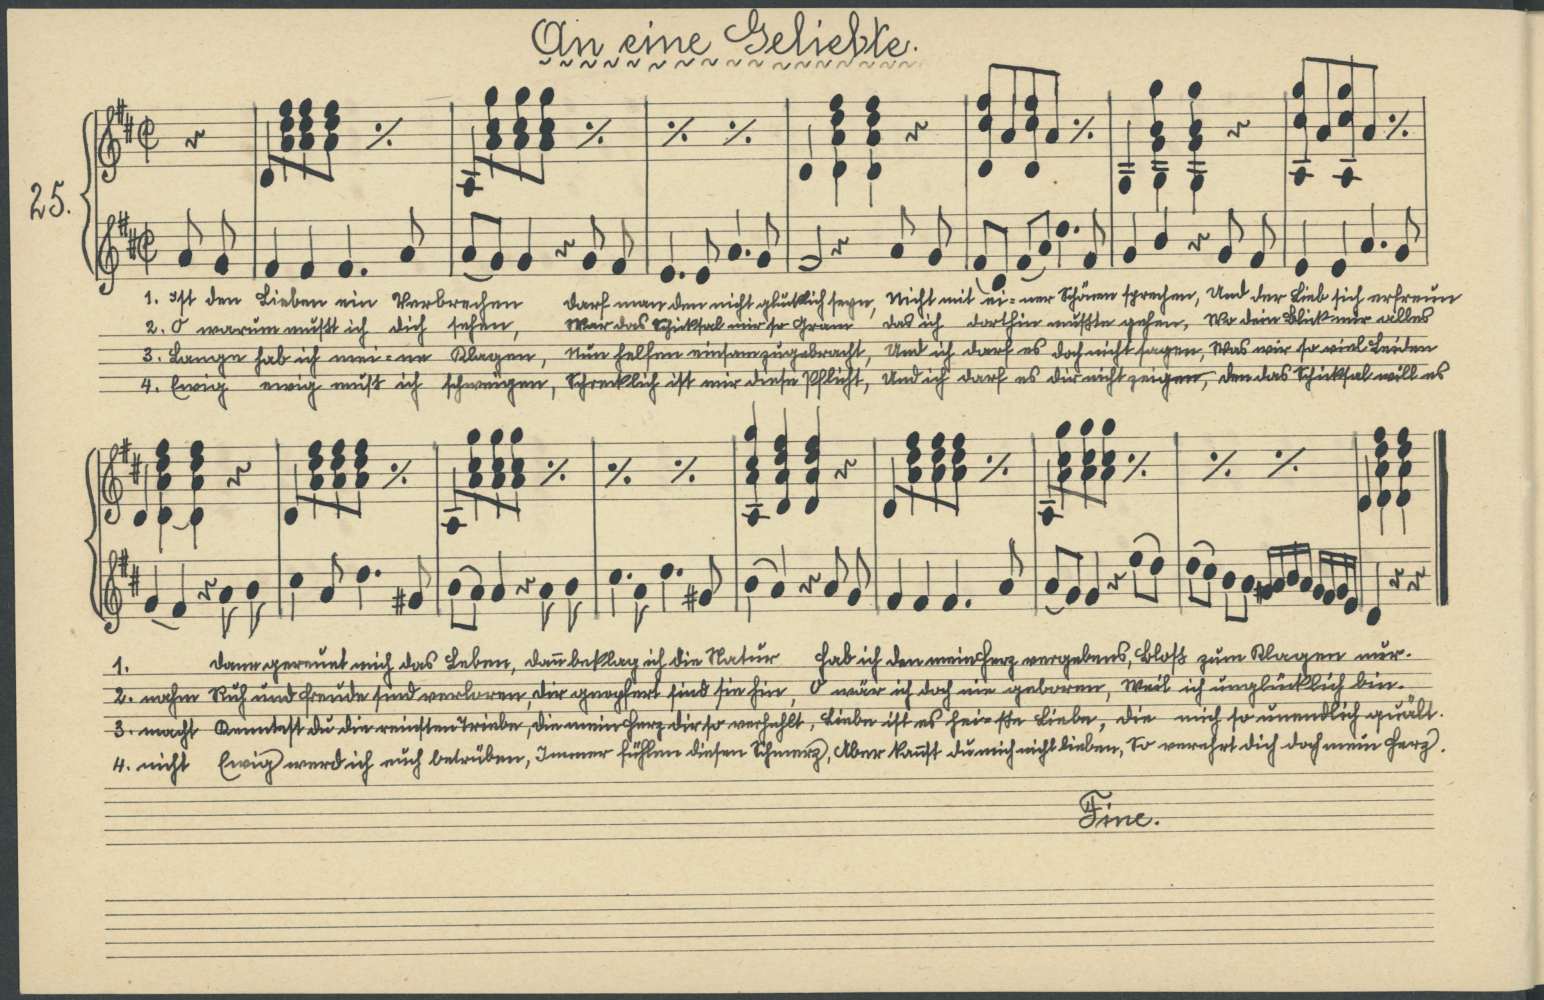 An eine Geliebte.
25.
1. Ist den Lieben ein Verbrechen darf man den nicht glücklich seyn, Nicht mit ei=ner Schönen sprechen, Und der Lieb sich erfreun
2. O warum mußt ich dich sehen, War das Schicksal mir so Gram das ich dorthin mußte gehen, Wo dein Blick mir alles
3. Lange hab ich mei=ne Klagen, Nun selsen einsam zugebracht, Und ich darf es doch nicht sagen, Was mir so viel Leiden
4. Ewig ewig muß ich schweigen, Schrecklich ist mir diese Pflicht, Und ich darf es dir nicht zeigen, den das Schicksal will es
1. dann gereuet mich das Leben, dan̄ beklag ich die Natur hab ich den mein Herz vergebens, Bloß zum Klagen nur.
2. nahm Ruh und Freude sind verloren, dir geopfert sind sie hin, O wär ich doch nie geboren, Weil ich unglücklich bin.
3. macht Kenntest du die reinsten Triebe, die mein Herz dir so verhehlt, Liebe ist es hei=ße Liebe, die mich so unendlich quält.
4. nicht Ewig werd ich euch betrüben, Immer fühlen diesen Schmerz, Aber kan̄st du mich nicht lieben, So verehrt dich doch mein Herz.
Fine.